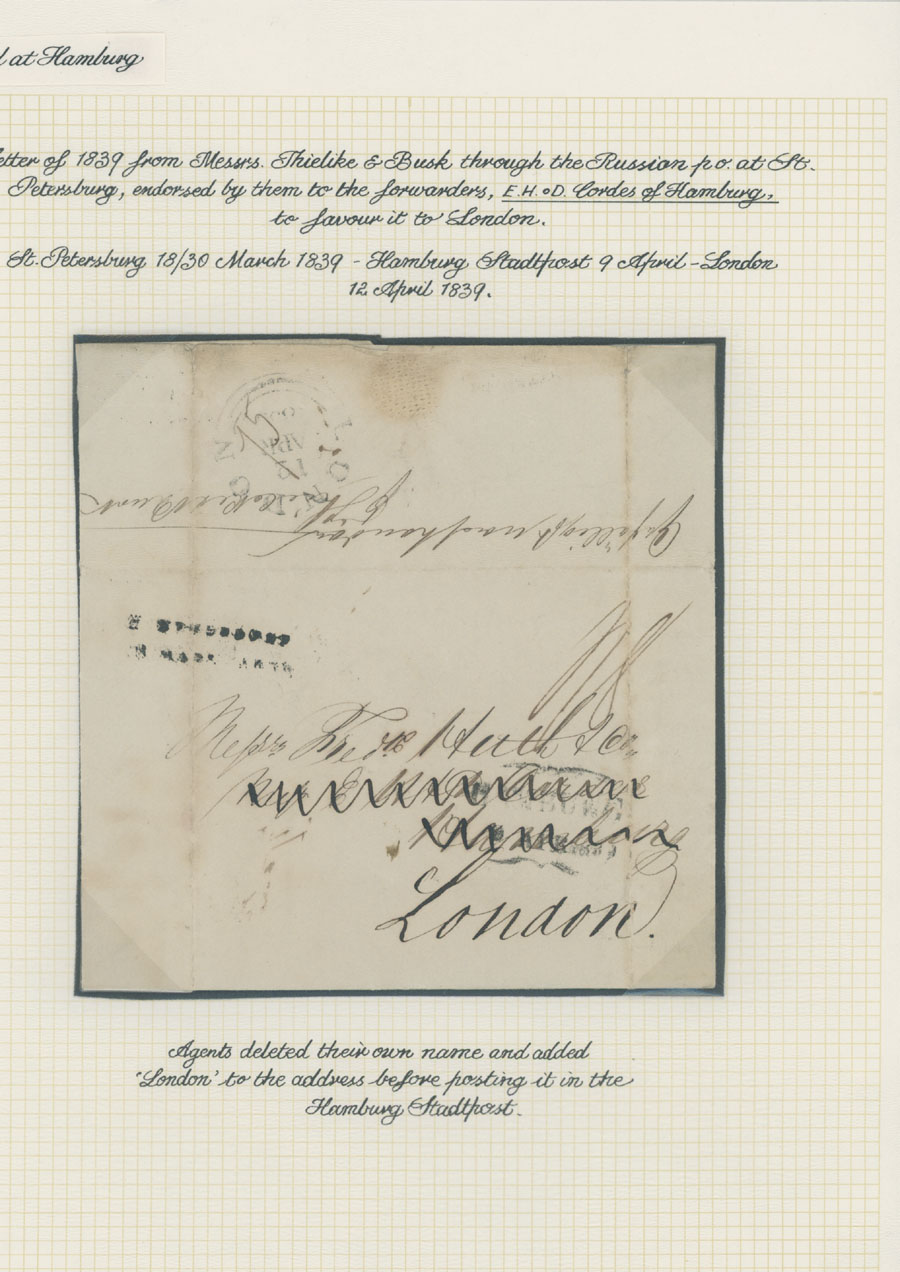 at Hamburg
etter of 1839 from Messrs. Thielike & Busk through the Russian p.o. at St.
Petersburg, endorsed by them to the forwarders, E.H. & D. Cordes of Hamburg,
to favour it to London.
St. Petersburg 18/30 March 1839 - Hamburg Stadtpost 9 April - London
12 April 1839.
LONDON
12
Messrs Fredk Huth & Co.
London.
Agents deleted their own name and added
'London' to the address before posting it in the
Hamburg Stadtpost.